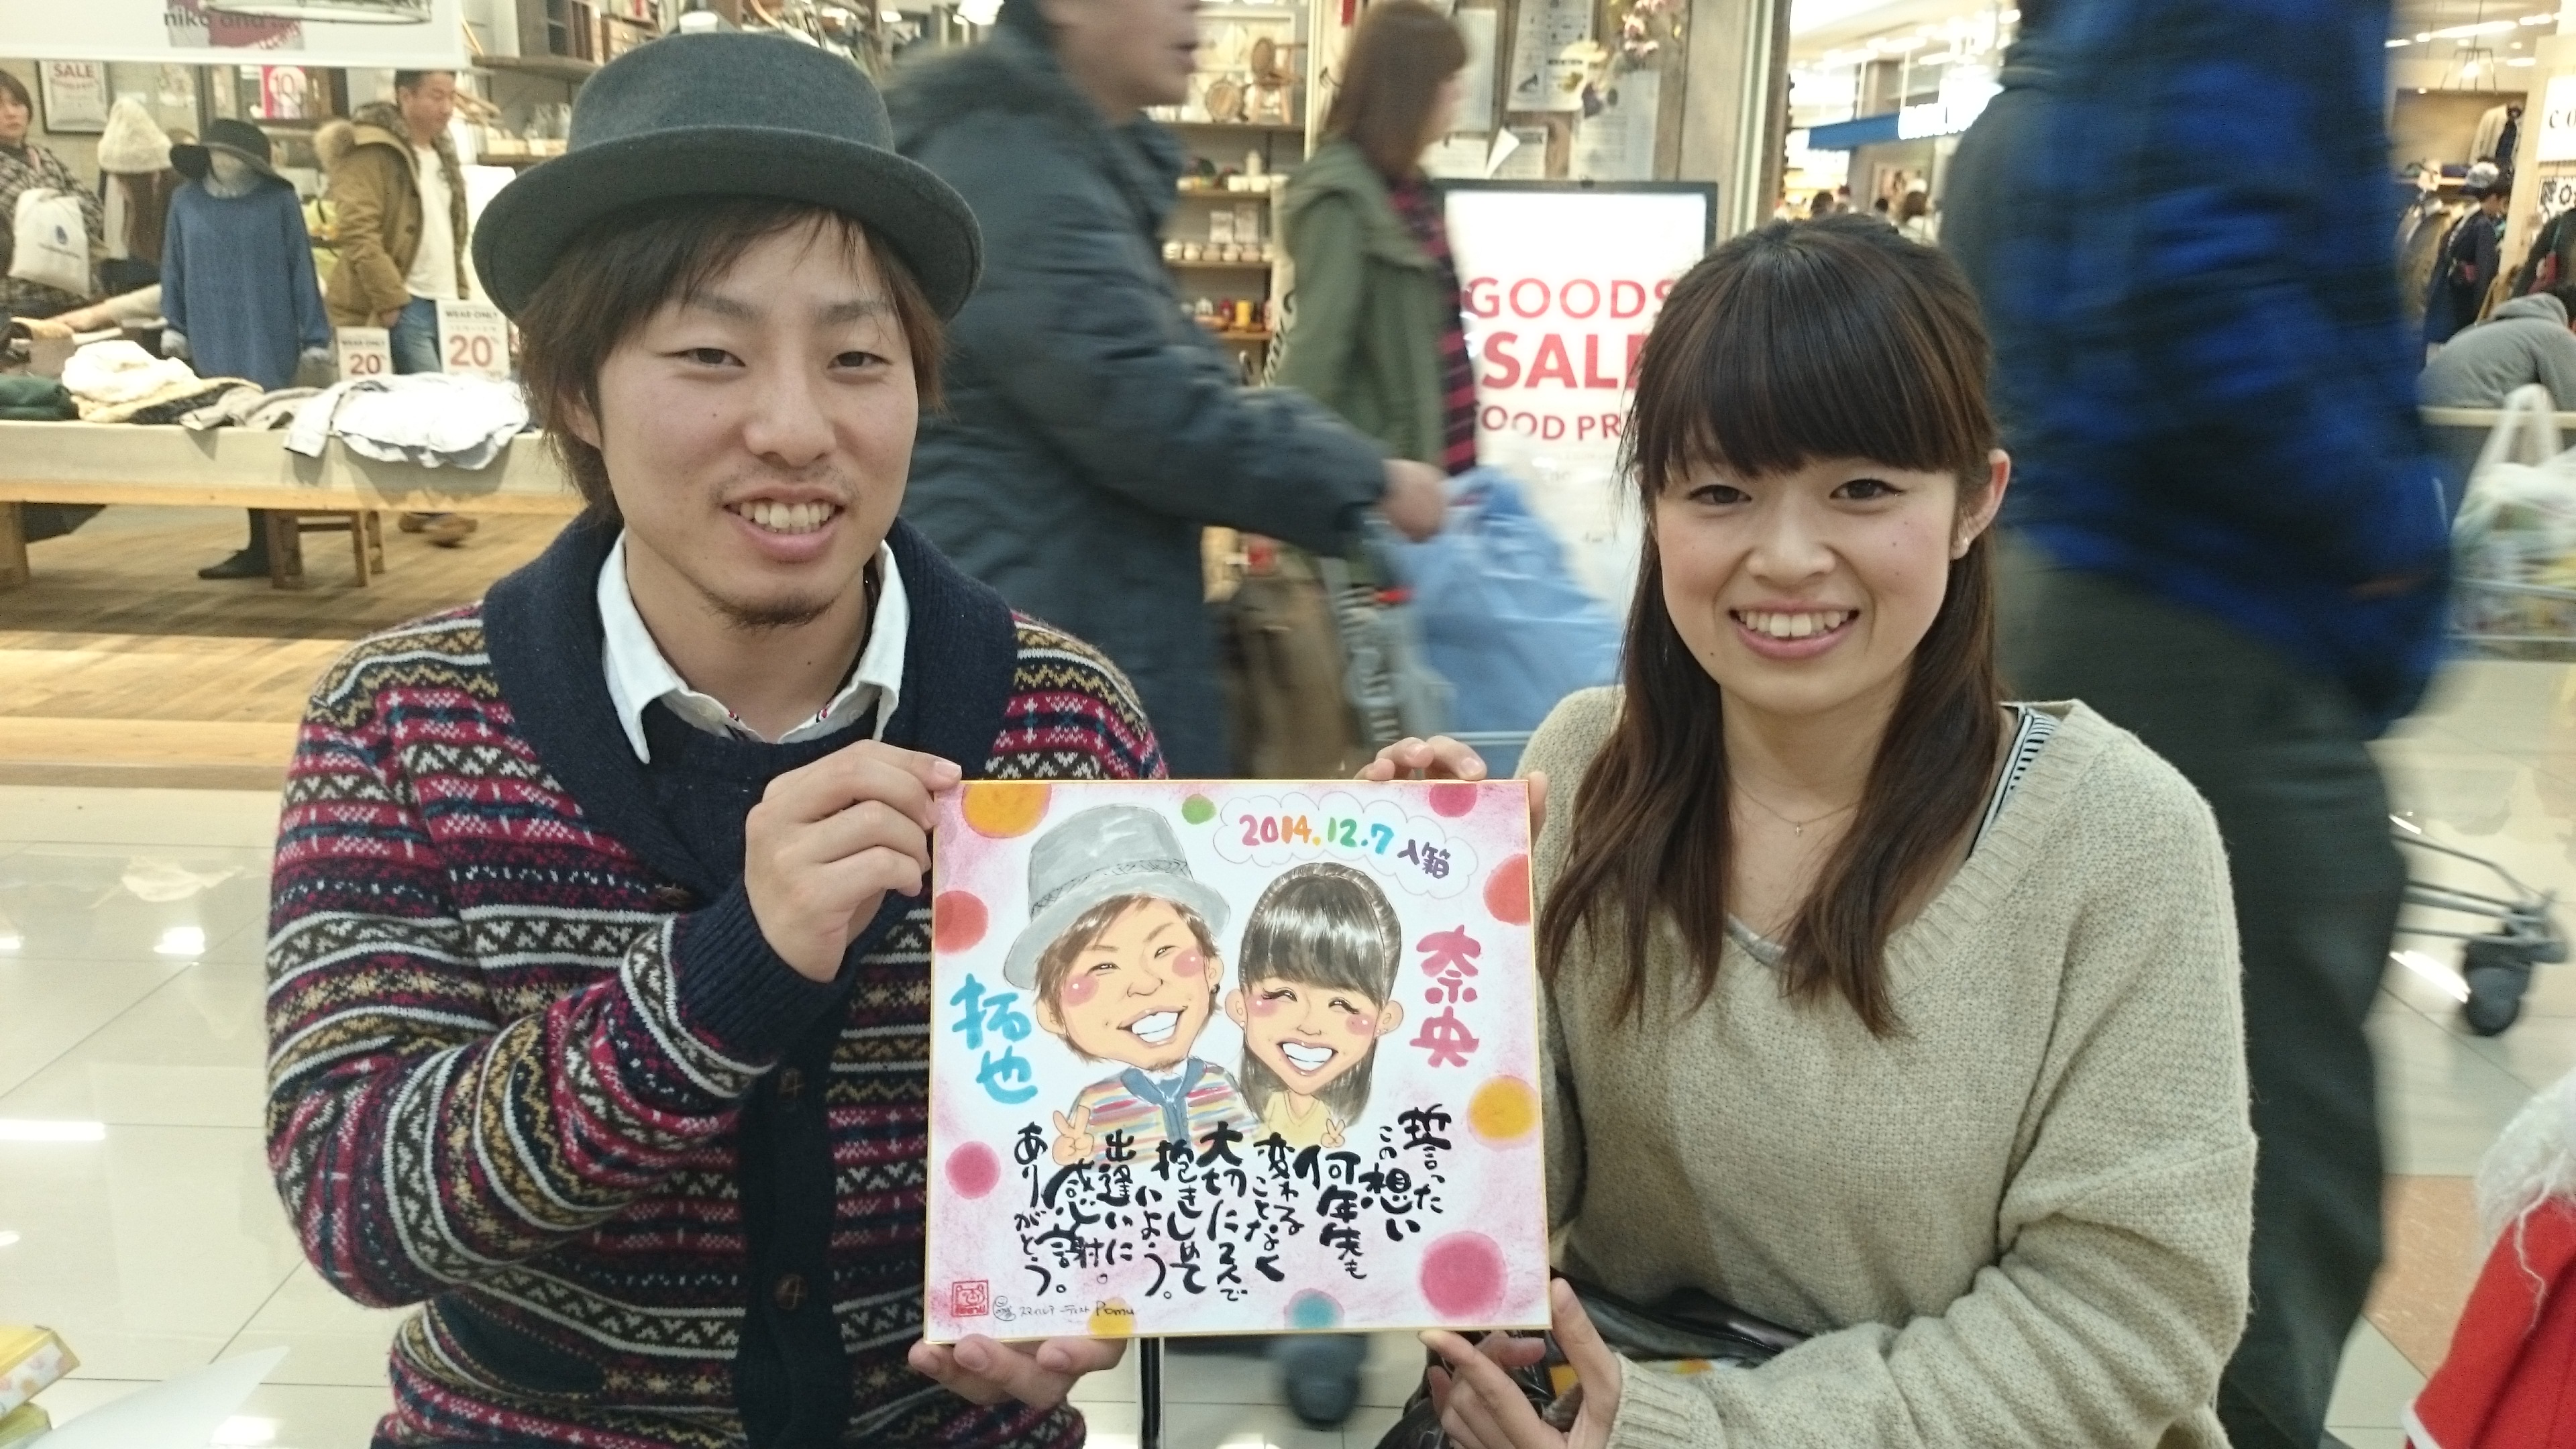 niko and...
SALE
10
WEAR ONLY
20%
WEAR ONLY
20%
GOODS
SALE
GOOD PR
2014.12.7 入籍
拓也
奈央
誓った
この想い
何年先も
変わる
ことなく
大切に2人で
抱きしめて
いよう。
出逢いに
感謝。
ありがとう。
スマイルアーティスト Pomu